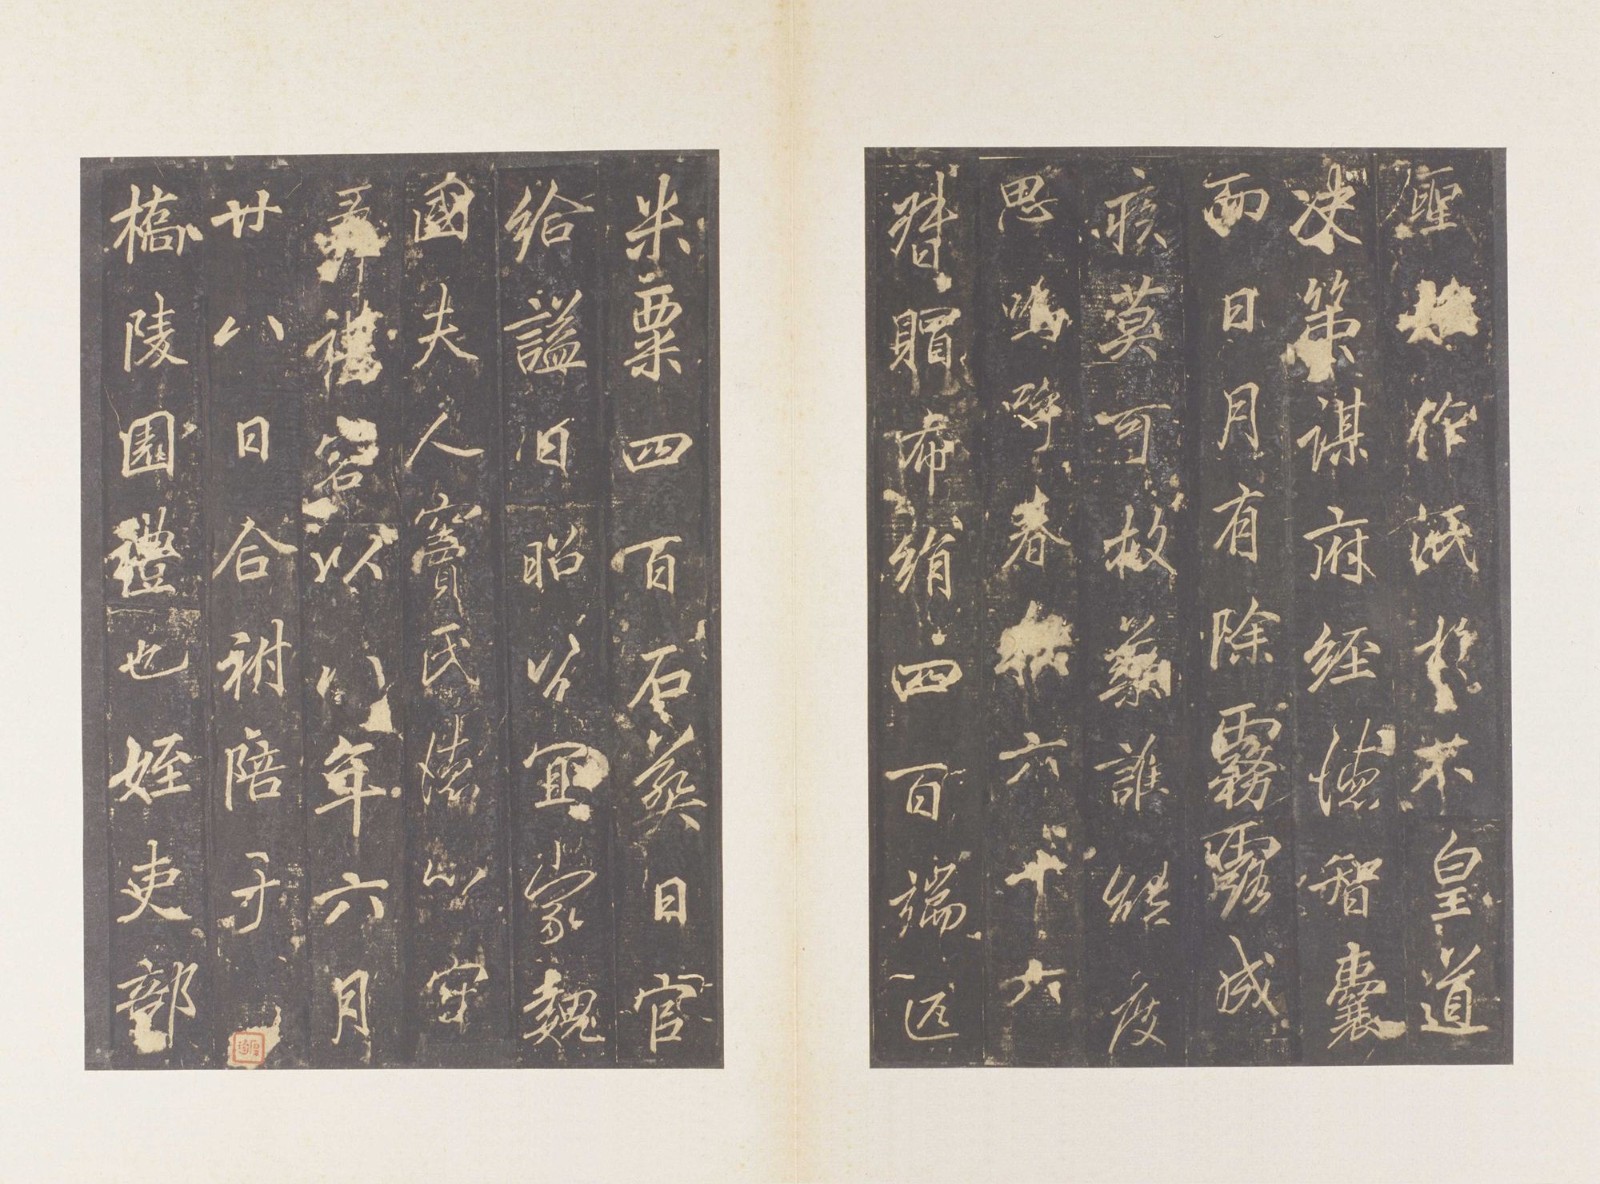 作泯於不皇道
決策謀府經德智囊
而日月有除霧露成
疾莫可救藥誰能度
思嗚呼春秋六十六
賵布絹四百端匹
米粟四百石葬日官
給謚曰昭公宜魏
國夫人竇氏心守
禮容以八年六月
廿八日合祔陪于
橋陵園禮也姪吏部